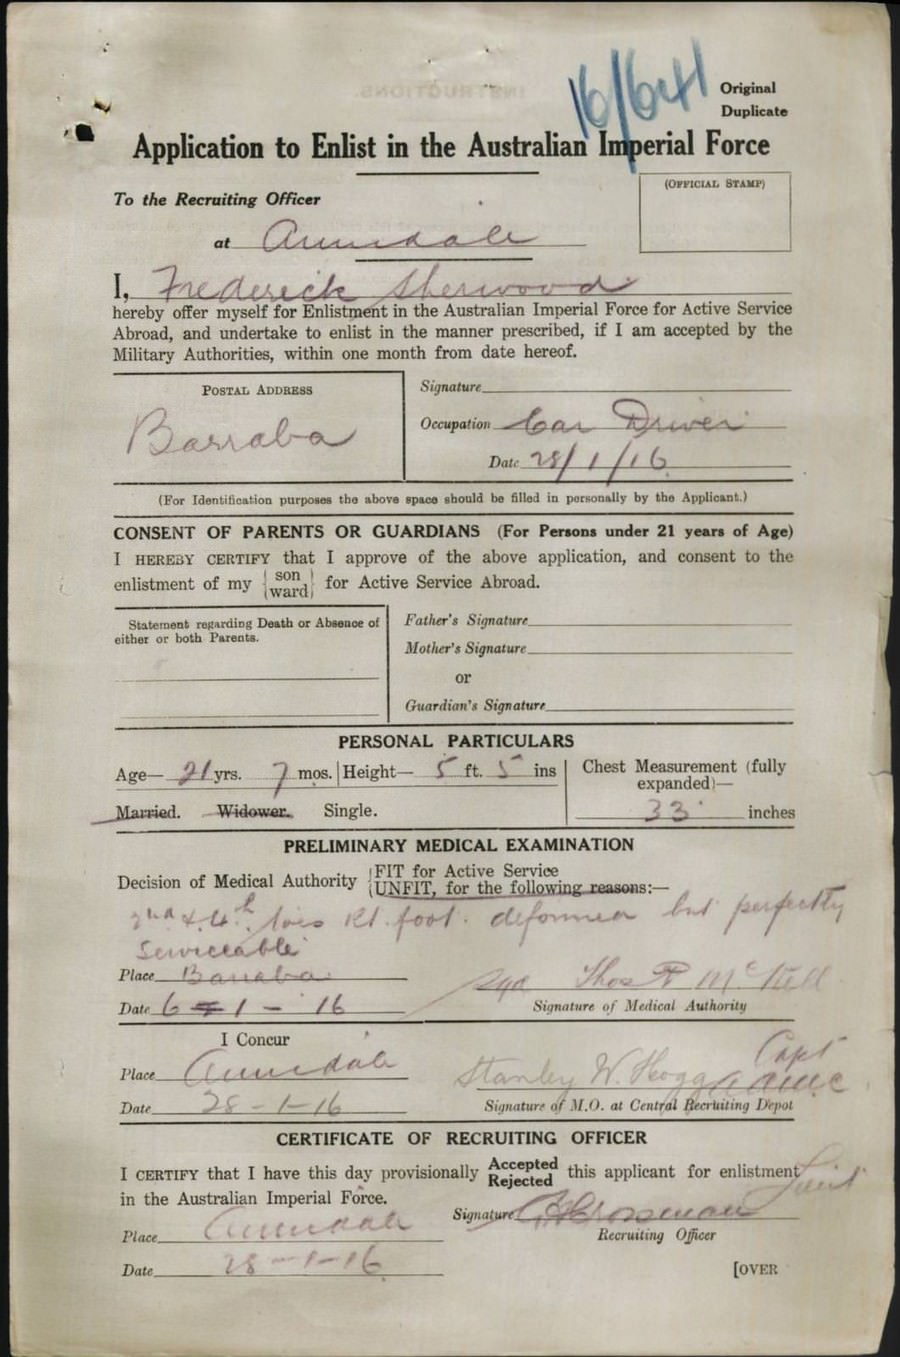 16/641
Original
Duplicate
Application to Enlist in the Australian Imperial Force
(OFFICIAL STAMP)
To the Recruiting Officer
at Armidale
I, Frederick Sherwood
hereby offer myself for Enlistment in the Australian Imperial Force for Active Service
Abroad, and undertake to enlist in the manner prescribed, if I am accepted by the
Military Authorities, within one month from date hereof.
POSTAL ADDRESS
Barraba
Signature
Occupation Car Driver
Date 28/1/16
(For Identification purposes the above space should be filled in personally by the Applicant.)
CONSENT OF PARENTS OR GUARDIANS (For Persons under 21 years of Age)
I HEREBY CERTIFY that I approve of the above application, and consent to the
enlistment of my {son ward} for Active Service Abroad.
Statement regarding Death or Absence of
either or both Parents.
Father's Signature
Mother's Signature
or
Guardian's Signature
PERSONAL PARTICULARS
Age— 21 yrs. 7 mos. Height— 5 ft. 5 ins
Chest Measurement (fully
expanded)—
33 inches
Married. Widower. Single.
PRELIMINARY MEDICAL EXAMINATION
Decision of Medical Authority {FIT for Active Service
{UNFIT, for the following reasons:—
2nd & 4th toes Rt foot. deformed but perfectly
serviceable
Place Barraba
Date 6-1-16
Sgd Thos P McKell
Signature of Medical Authority
I Concur
Place Armidale
Date 28-1-16
Stanley W. Hogg Capt
AAMC
Signature of M.O. at Central Recruiting Depot
CERTIFICATE OF RECRUITING OFFICER
I CERTIFY that I have this day provisionally Accepted Rejected this applicant for enlistment
in the Australian Imperial Force.
Signature Crossman Lieut
Recruiting Officer
Place Armidale
Date 28-1-16
[OVER